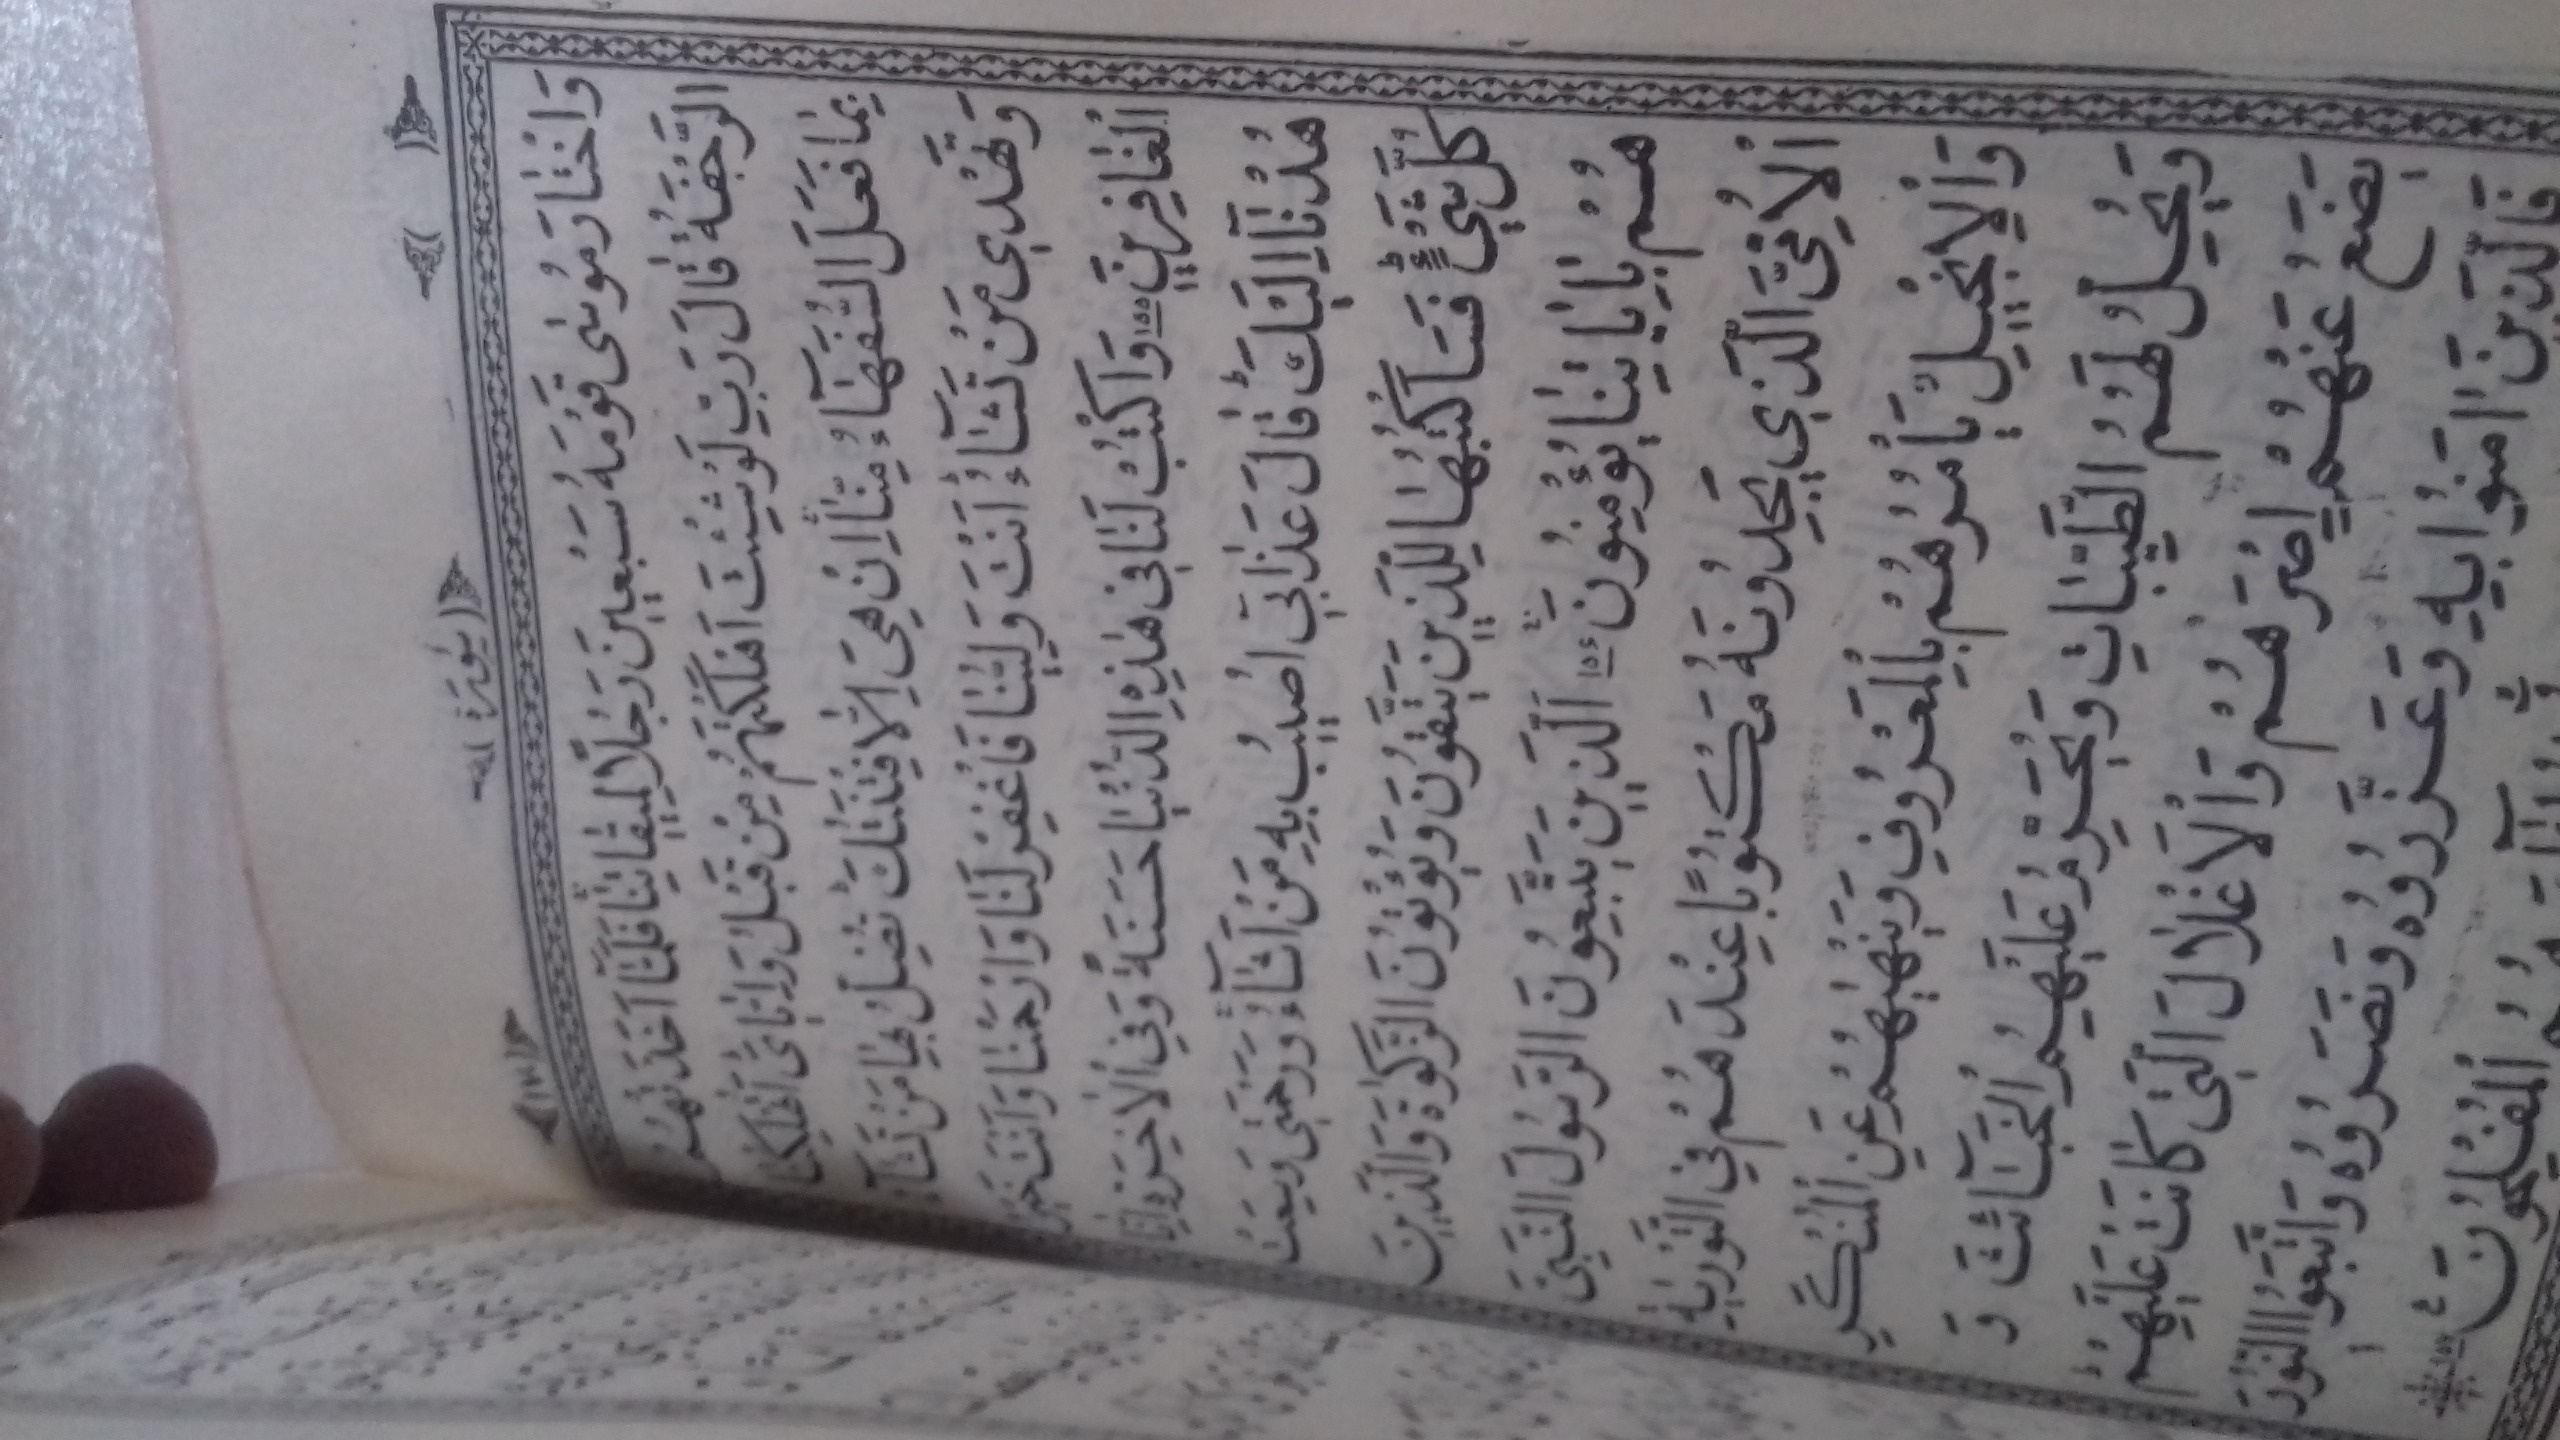 (سُورَة)
وَاخْتَارَ مُوسٰى قَوْمَهٗ سَبْعِينَ رَجُلًا لِمِيقَاتِنَا فَلَمَّا اَخَذَتْهُمُ
الرَّجْفَةُ قَالَ رَبِّ لَوْ شِئْتَ اَهْلَكْتَهُمْ مِنْ قَبْلُ وَاِيَّايَ اَتُهْلِكُنَا
بِمَا فَعَلَ السُّفَهَاءُ مِنَّا اِنْ هِيَ اِلَّا فِتْنَتُكَ تُضِلُّ بِهَا مَنْ تَشَاءُ
وَتَهْدِى مَنْ تَشَاءُ اَنْتَ وَلِيُّنَا فَاغْفِرْ لَنَا وَارْحَمْنَا وَاَنْتَ خَيْرُ
الْغَافِرِينَ ١٥٥ وَاكْتُبْ لَنَا فِى هٰذِهِ الدُّنْيَا حَسَنَةً وَفِي الْاٰخِرَةِ اِنَّا
هُدْنَا اِلَيْكَ قَالَ عَذَابِى اُصِيبُ بِهٖ مَنْ اَشَاءُ وَرَحْمَتِى وَسِعَتْ
كُلَّ شَيْءٍ فَسَاَكْتُبُهَا لِلَّذِينَ يَتَّقُونَ وَيُؤْتُونَ الزَّكٰوةَ وَالَّذِينَ
هُمْ بِاٰيَاتِنَا يُؤْمِنُونَ ١٥٦ اَلَّذِينَ يَتَّبِعُونَ الرَّسُولَ النَّبِىَّ
الْاُمِّىَّ الَّذِي يَجِدُونَهٗ مَكْتُوبًا عِنْدَهُمْ فِي التَّوْرٰيةِ
وَالْاِنْجِيلِ يَاْمُرُهُمْ بِالْمَعْرُوفِ وَيَنْهٰيهُمْ عَنِ الْمُنْكَرِ
وَيُحِلُّ لَهُمُ الطَّيِّبَاتِ وَيُحَرِّمُ عَلَيْهِمُ الْخَبَائِثَ وَ
يَضَعُ عَنْهُمْ اِصْرَهُمْ وَالْاَغْلَالَ الَّتِى كَانَتْ عَلَيْهِمْ
فَالَّذِينَ اٰمَنُوا بِهٖ وَعَزَّرُوهُ وَنَصَرُوهُ وَاتَّبَعُوا النُّورَ
هُمُ الْمُفْلِحُونَ